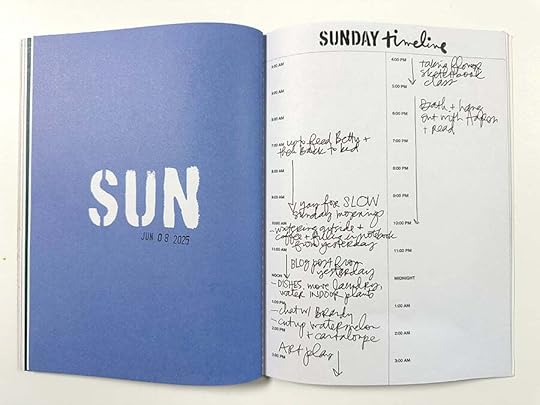 SUN
JUN 08 2025
SUNDAY timeline
5:00 AM
6:00 AM
7:00 AM
up to feed Betty +
then back to bed
8:00 AM
9:00 AM
yay for SLOW
Sunday mornings
10:00 AM
- watering outside +
coffee + filling in notebook
from yesterday
11:00 AM
Blog post from
yesterday
NOON
- DISHES, more laundry,
water INDOOR plants
1:00 PM
- chat w/ Brandy
- cut up watermelon
+ cantaloupe
2:00 PM
Art play
3:00 PM
4:00 PM
taking flower
sketchbook
class
5:00 PM
Bath + hang
out with
+ read
6:00 PM
7:00 PM
8:00 PM
9:00 PM
11:00 PM
MIDNIGHT
1:00 AM
2:00 AM
3:00 AM